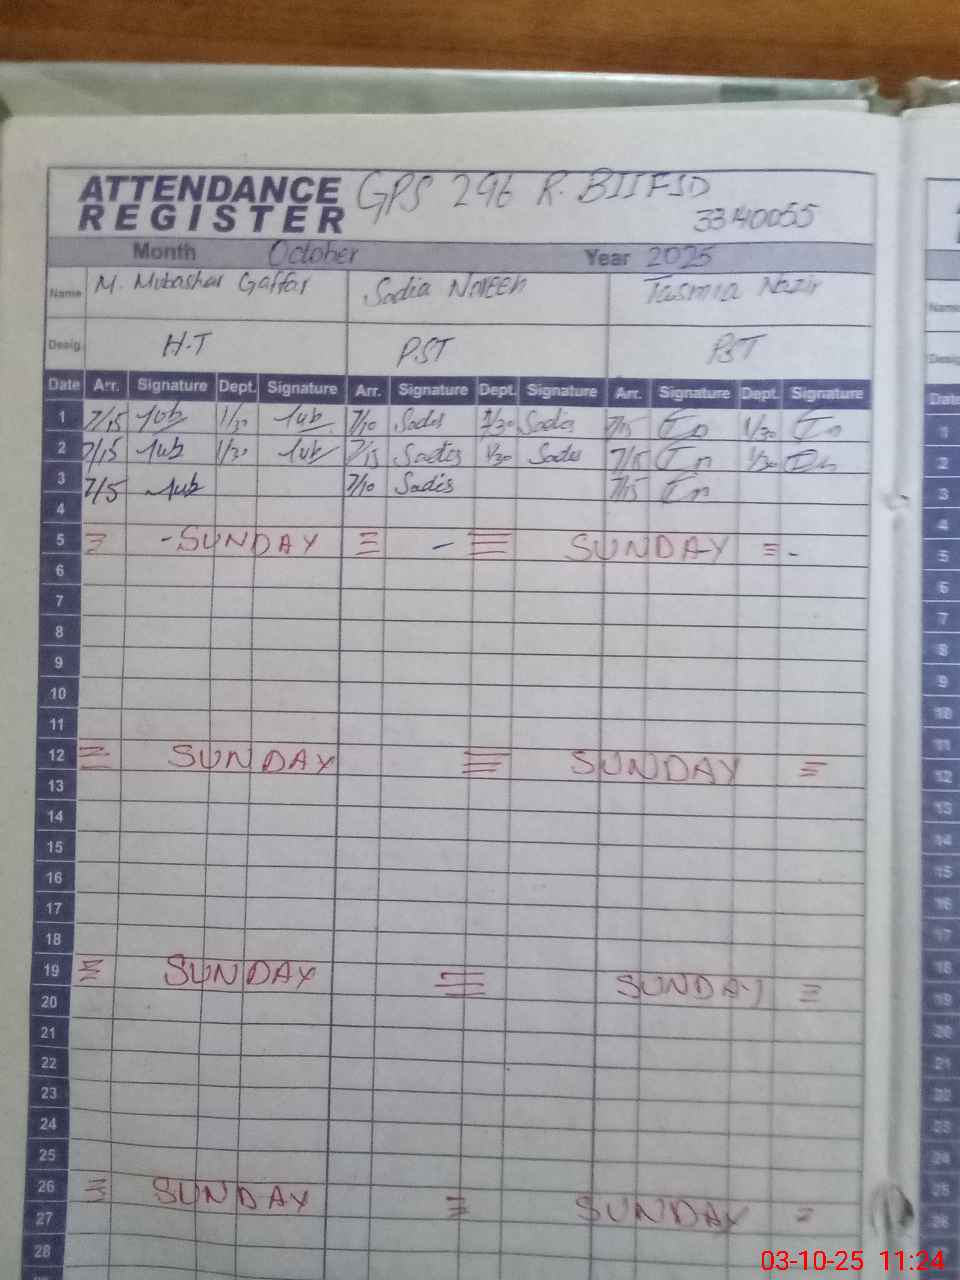 ATTENDANCE REGISTER
GPS 296 R.B II FSD
3340055
Month October Year 2025
Name M. Mubashar Gaffar Sadia Noreen Tasmia Nazir
Desig. H.T PST PST
Date Arr. Signature Dept. Signature Arr. Signature Dept. Signature Arr. Signature Dept. Signature
1 7/15 Mub 1/30 Mub 7/10 Sadia 1/30 Sadia 7/15 Tn 1/30 Tn
2 7/15 Mub 1/30 Mub 7/15 Sadia 1/30 Sadia 7/15 Tn 1/30 Tn
3 7/15 Mub 7/10 Sadia 7/15 Tn
4
5 SUNDAY SUNDAY
6
7
8
9
10
11
12 SUNDAY SUNDAY
13
14
15
16
17
18
19 SUNDAY SUNDAY
20
21
22
23
24
25
26 SUNDAY SUNDAY
27
28
03-10-25 11:24